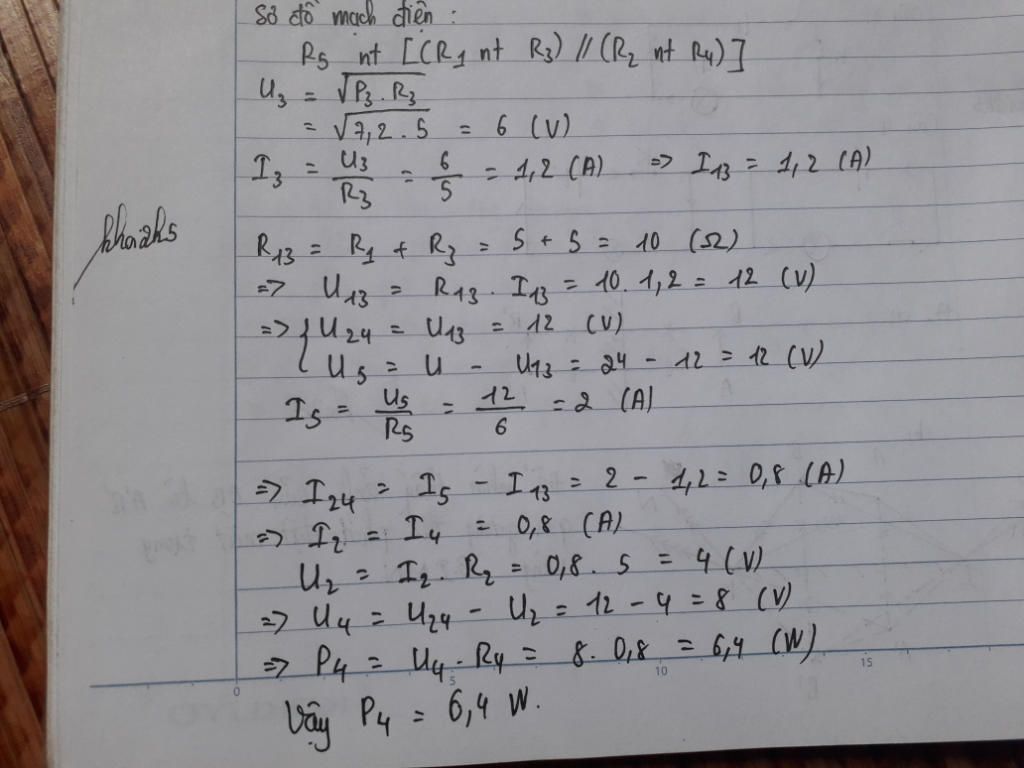 Sơ đồ mạch điện :
R5 nt [(R1 nt R3) // (R2 nt R4)]
U3 = √P3 . R3
= √7,2 . 5 = 6 (V)
I3 = U3/R3 = 6/5 = 1,2 (A) => I13 = 1,2 (A)
khoahs
R13 = R1 + R3 = 5 + 5 = 10 (Ω)
=> U13 = R13 . I13 = 10 . 1,2 = 12 (V)
=> { U24 = U13 = 12 (V)
U5 = U - U13 = 24 - 12 = 12 (V)
I5 = U5/R5 = 12/6 = 2 (A)
=> I24 = I5 - I13 = 2 - 1,2 = 0,8 (A)
=> I2 = I4 = 0,8 (A)
U2 = I2 . R2 = 0,8 . 5 = 4 (V)
=> U4 = U24 - U2 = 12 - 4 = 8 (V)
=> P4 = U4 . R4 = 8 . 0,8 = 6,4 (W)
0 5 10 15
Vậy P4 = 6,4 W.